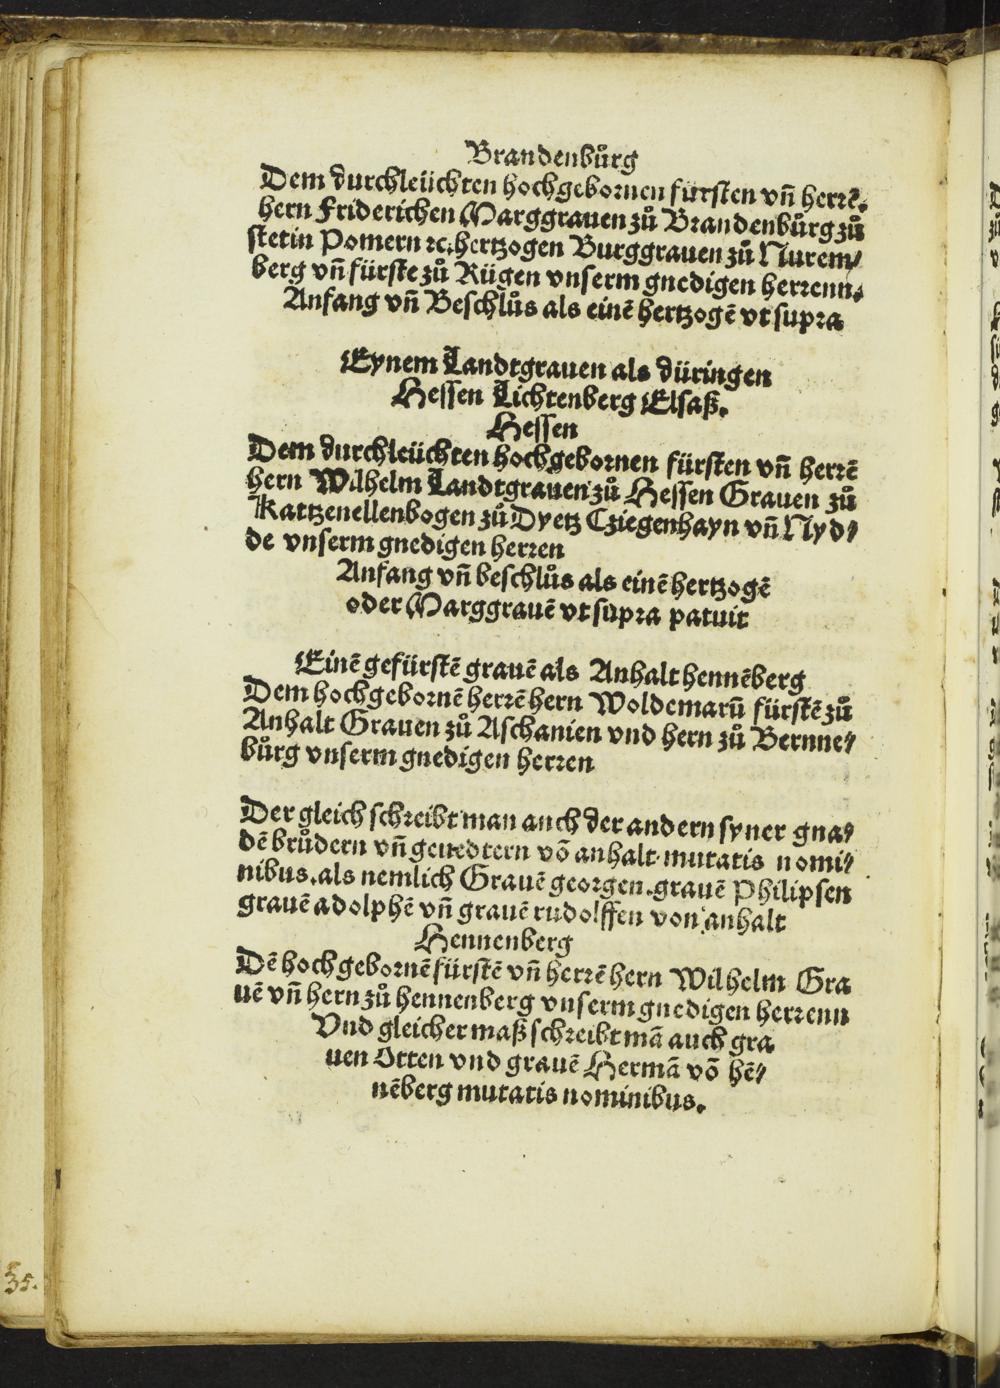 Brandenbůrg
Dem durchleüchten hochgebornen fürsten vñ herrẽ.
hern Friderichen Marggrauen zů Brandenbůrg zů
stetin Pomern ⁊c. hertzogen Burggrauen zů Nurem⸗
berg vñ fürste zů Rügen vnserm gnedigen herrenn.
Anfang vñ Beschlůs als einẽ hertzogẽ vt supra
Eynem Landtgrauen als düringen
Hessen Lichtenberg Elsaß.
Hessen
Dem durchleüchten hochgebornen fürsten vñ herrẽ
hern Wilhelm Landtgrauen zů Hessen Grauen zů
Kattzenellenbogen zů Dyetz Cziegenhayn vñ Nyd⸗
de vnserm gnedigen herren
Anfang vñ beschlůs als einẽ hertzogẽ
oder Marggrauẽ vt supra patuit
Einẽ gefürstẽ grauẽ als Anhalt hennẽberg
Dem hochgebornẽ herrẽ hern Woldemarũ fürstẽ zů
Anhalt Grauen zů Aschanien vnd hern zů Bernne⸗
bůrg vnserm gnedigen herren
Der gleich schreibt man auch der andern syner gna⸗
dẽ brůdern vñ võ anhalt mutatis nomi⸗
nibus. als nemlich Grauẽ georgen. grauẽ Philipsen
grauẽ adolphẽ vñ grauẽ rudolffen von anhalt
Hennenberg
Dẽ hochgebornẽ fürstẽ vñ herrẽ hern Wilhelm Gra
uẽ vñ hern zů hennenberg vnserm gnedigen herrenn
Vnd gleicher maß schreibt mã auch gra
uen Otten vnd grauẽ Hermã võ hẽ⸗
nẽberg mutatis nominibus.
35.